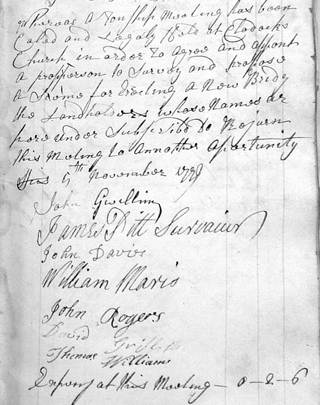 Whereas A Tonship Meeling has been
Caled and Legaly Held at Clodocks
Church in order to Agree and Apont
a properson to Survey and propose
a Scome for Erecling A New Bridg
the Landholders whose Names ar
here under Subscribd do Rejurn
this Meeling to Annother Aportunity
this 9th November
John Gwillim
James Pitt Survaiur
John Davies
William Maris
John Rogers
David Griffiths
Thomas Williams
Expenc at this Meeling - 0 - 2 - 6